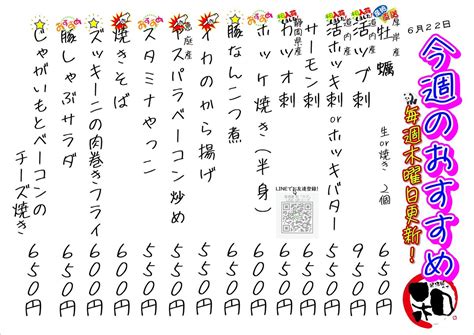 6月22日
今週のおすすめ
毎週木曜日更新!
厚岸産
牡蠣 生or焼き 2個 650円
道内産
活ツブ刺 950円
道内産
活ホッキ刺orホッキバター 650円
サーモン刺 600円
静岡県産
カツオ刺 600円
LINEでお友達登録!
おすすめ
ホッケ焼き(半身) 600円
豚なんこつ煮 600円
おすすめ
イカのから揚げ 550円
恵庭産
アスパラベーコン炒め 550円
おすすめ
スタミナやっこ 550円
焼きそば 600円
ズッキーニの肉巻きフライ 600円
豚しゃぶサラダ 650円
おすすめ
じゃがいもとベーコンの
チーズ焼き 650円